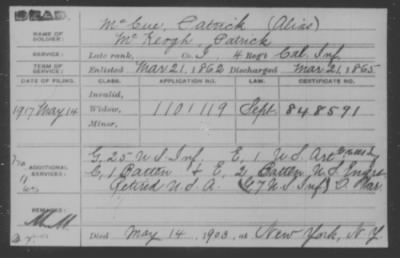 DEAD.
NAME OF SOLDIER: McCue, Patrick (Alias)
McKeogh, Patrick
SERVICE: Late rank, Co. 4 Reg't Cal. Inf
TERM OF SERVICE: Enlisted Mar 21, 1862 Discharged Mar 21, 1865
DATE OF FILING. CLASS. APPLICATION NO. LAW. CERTIFICATE NO.
Invalid,
1917 May 14 Widow, 1101119 Sept 848591
Minor,
ADDITIONAL SERVICES: G, 25 U S Inf, E, 1 U.S. Art
C, 1 Batten & E, 2, Batten U.S. Engrs
Retired U.S.A. (G 7 U S Inf)
REMARKS:
Died May 14, 1903, at New York, N.Y.